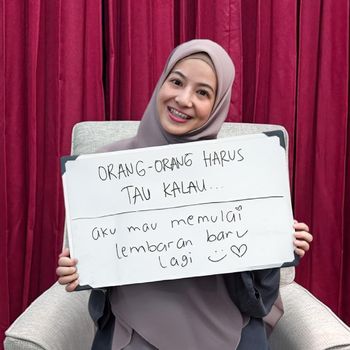 ORANG-ORANG HARUS
TAU KALAU...
aku mau memulai
lembaran baru
lagi